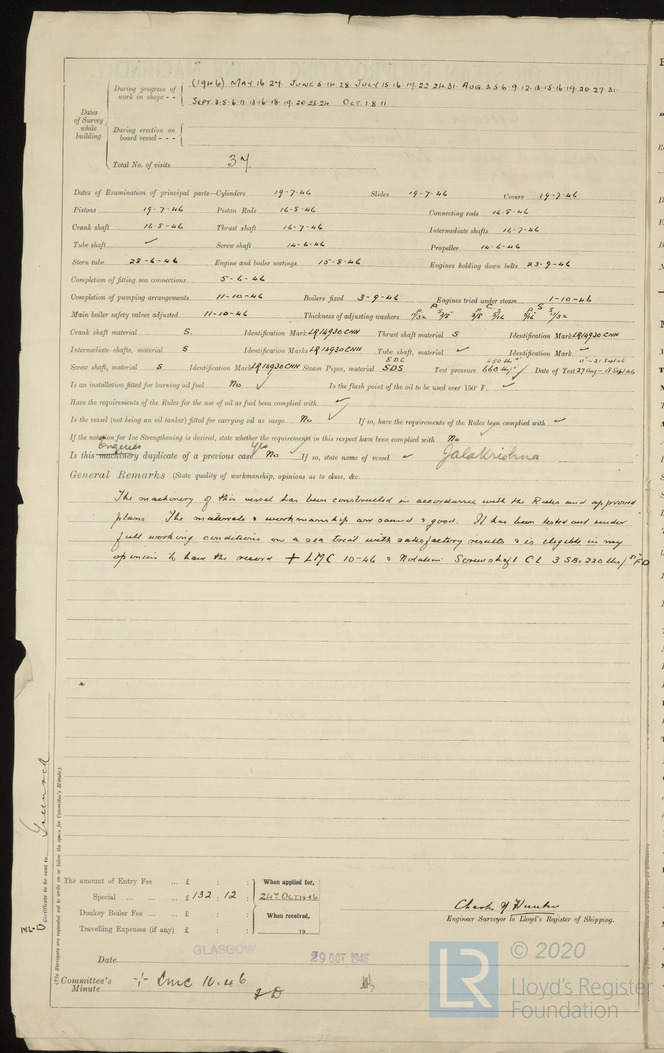 Dates of Survey while building
During progress of work in shops - - (1946) MAY 16 24. JUNE 5 14 28 JULY 15 16. 19. 22 24. 31. AUG. 3. 5. 6. 9. 12. 13. 15. 16. 19. 20. 27 31
SEPT. 3. 5. 6. 11. 13. 16. 18. 19. 20. 23. 24. OCT. 1. 8. 11
During erection on board vessel - - -
Total No. of visits 37
Dates of Examination of principal parts—Cylinders 19-7-46 Slides 19-7-46 Covers 19-7-46
Pistons 19-7-46 Piston Rods 16-8-46 Connecting rods 16-8-46
Crank shaft 16-8-46 Thrust shaft 16-7-46 Intermediate shafts 16-7-46
Tube shaft ✓ Screw shaft 14-6-46 Propeller 14-6-46
Stern tube 28-6-46 Engine and boiler seatings 15-8-46 Engines holding down bolts 23-9-46
Completion of fitting sea connections 5-6-46
Completion of pumping arrangements 11-10-46 Boilers fixed 3-9-46 Engines tried under steam 1-10-46
Main boiler safety valves adjusted 11-10-46 Thickness of adjusting washers
Crank shaft material S. Identification Mark LR 14930 CNH Thrust shaft material S Identification Mark LR 14930 CNH
Intermediate shafts, material S Identification Marks LR 14930 CNH Tube shaft, material ✓ Identification Mark ✓
Screw shaft, material S Identification Mark LR 14930 CNH Steam Pipes, material SDC SDS Test pressure 450 lbs 660 lbs ✓ Date of Test 11th-21 Sept 46 27 Aug-13 Sept 46
Is an installation fitted for burning oil fuel No ✓ Is the flash point of the oil to be used over 150° F. ✓
Have the requirements of the Rules for the use of oil as fuel been complied with ✓
Is the vessel (not being an oil tanker) fitted for carrying oil as cargo No ✓ If so, have the requirements of the Rules been complied with ✓
If the notation for Ice Strengthening is desired, state whether the requirements in this respect have been complied with No
Engines Yes
Is this machinery duplicate of a previous case No ✓ If so, state name of vessel ✓ Jalakrishna
General Remarks (State quality of workmanship, opinions as to class, &c.
The machinery of this vessel has been constructed in accordance with the Rules and approved
plans The materials & workmanship are sound & good. It has been tested out under
full working conditions on a sea trial with satisfactory results & is eligible in my
opinion to have the record + LMC 10-46 & Notation Screwshaft CL 3 SB. 220 lbs/□" FD
Certificate to be sent to Greenock
(The Surveyors are requested not to write on or below the space for Committee's Minute.)
The amount of Entry Fee ... £ : : When applied for,
Special ... ... £ 132 : 12 : 24th OCT. 1946
Donkey Boiler Fee ... £ : : When received,
Travelling Expenses (if any) £ : : 19
Charles N Hunter
Engineer Surveyor to Lloyd's Register of Shipping.
Date GLASGOW 29 OCT 1946
Committee's Minute + Lmc 10.46
FD
© 2020
LR Lloyd's Register Foundation